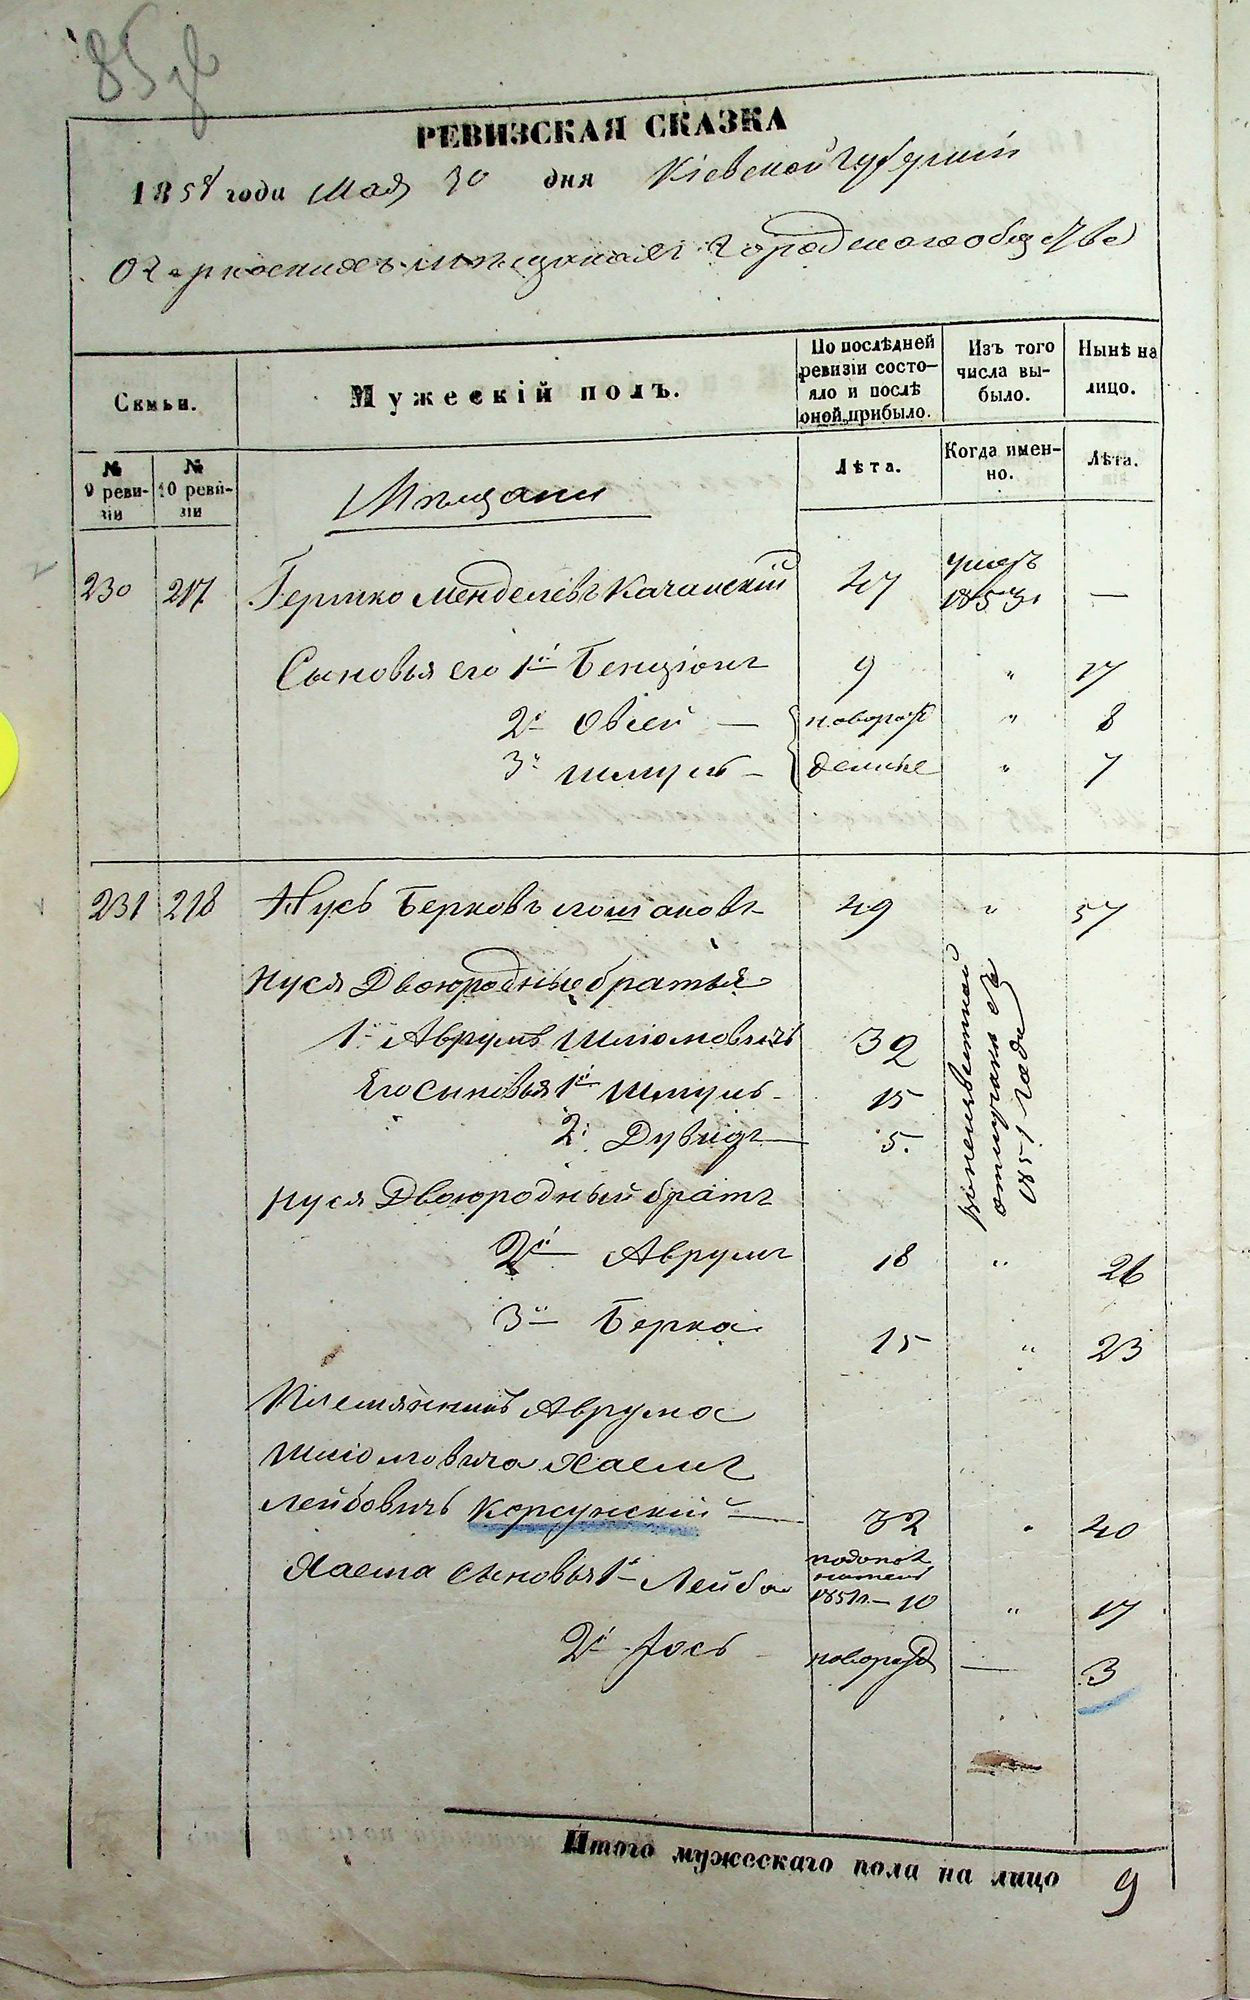 85
РЕВИЗСКАЯ СКАЗКА
1858 года Мая 30 дня Кіевской Губерніи
О Черкасскихъ мѣщанахъ Городского общества
Семьи.
Мужескій полъ.
По послѣдней ревизіи состояло и послѣ оной прибыло.
Изъ того числа выбыло.
Нынѣ на лицо.
№ 9 ревизіи
№ 10 ревизіи
Лѣта.
Когда именно.
Лѣта.
Мѣщани
230 217 Гершко Менделевъ Качанскій 47 умеръ 1853г. —
Сыновья его 1й Бенціонъ 9 " 17
2й Овсей — новорож " 8
3й Шмуль — денные " 7
231 218 Нусь Берковъ 49 " 57
Нуся Двоюродные братья
1й Аврумъ Шліомовичъ 32
Его сыновья 1й Шмуль 15
2й Дувидъ — 5.
въ неизвѣстной отлучкѣ съ 1851 года
Нуся Двоюродный братъ
2й Аврумъ 18 " 26
3й Берко 15 " 23
Племянникъ Аврума
Шліомовича Хаимъ
Лейбовичъ Корсунскій — 32 " 40
Хаима сыновья 1й Лейба 1851г. — 10 " 17
2й Іось новорожд — 3
Итого мужескаго пола на лицо 9